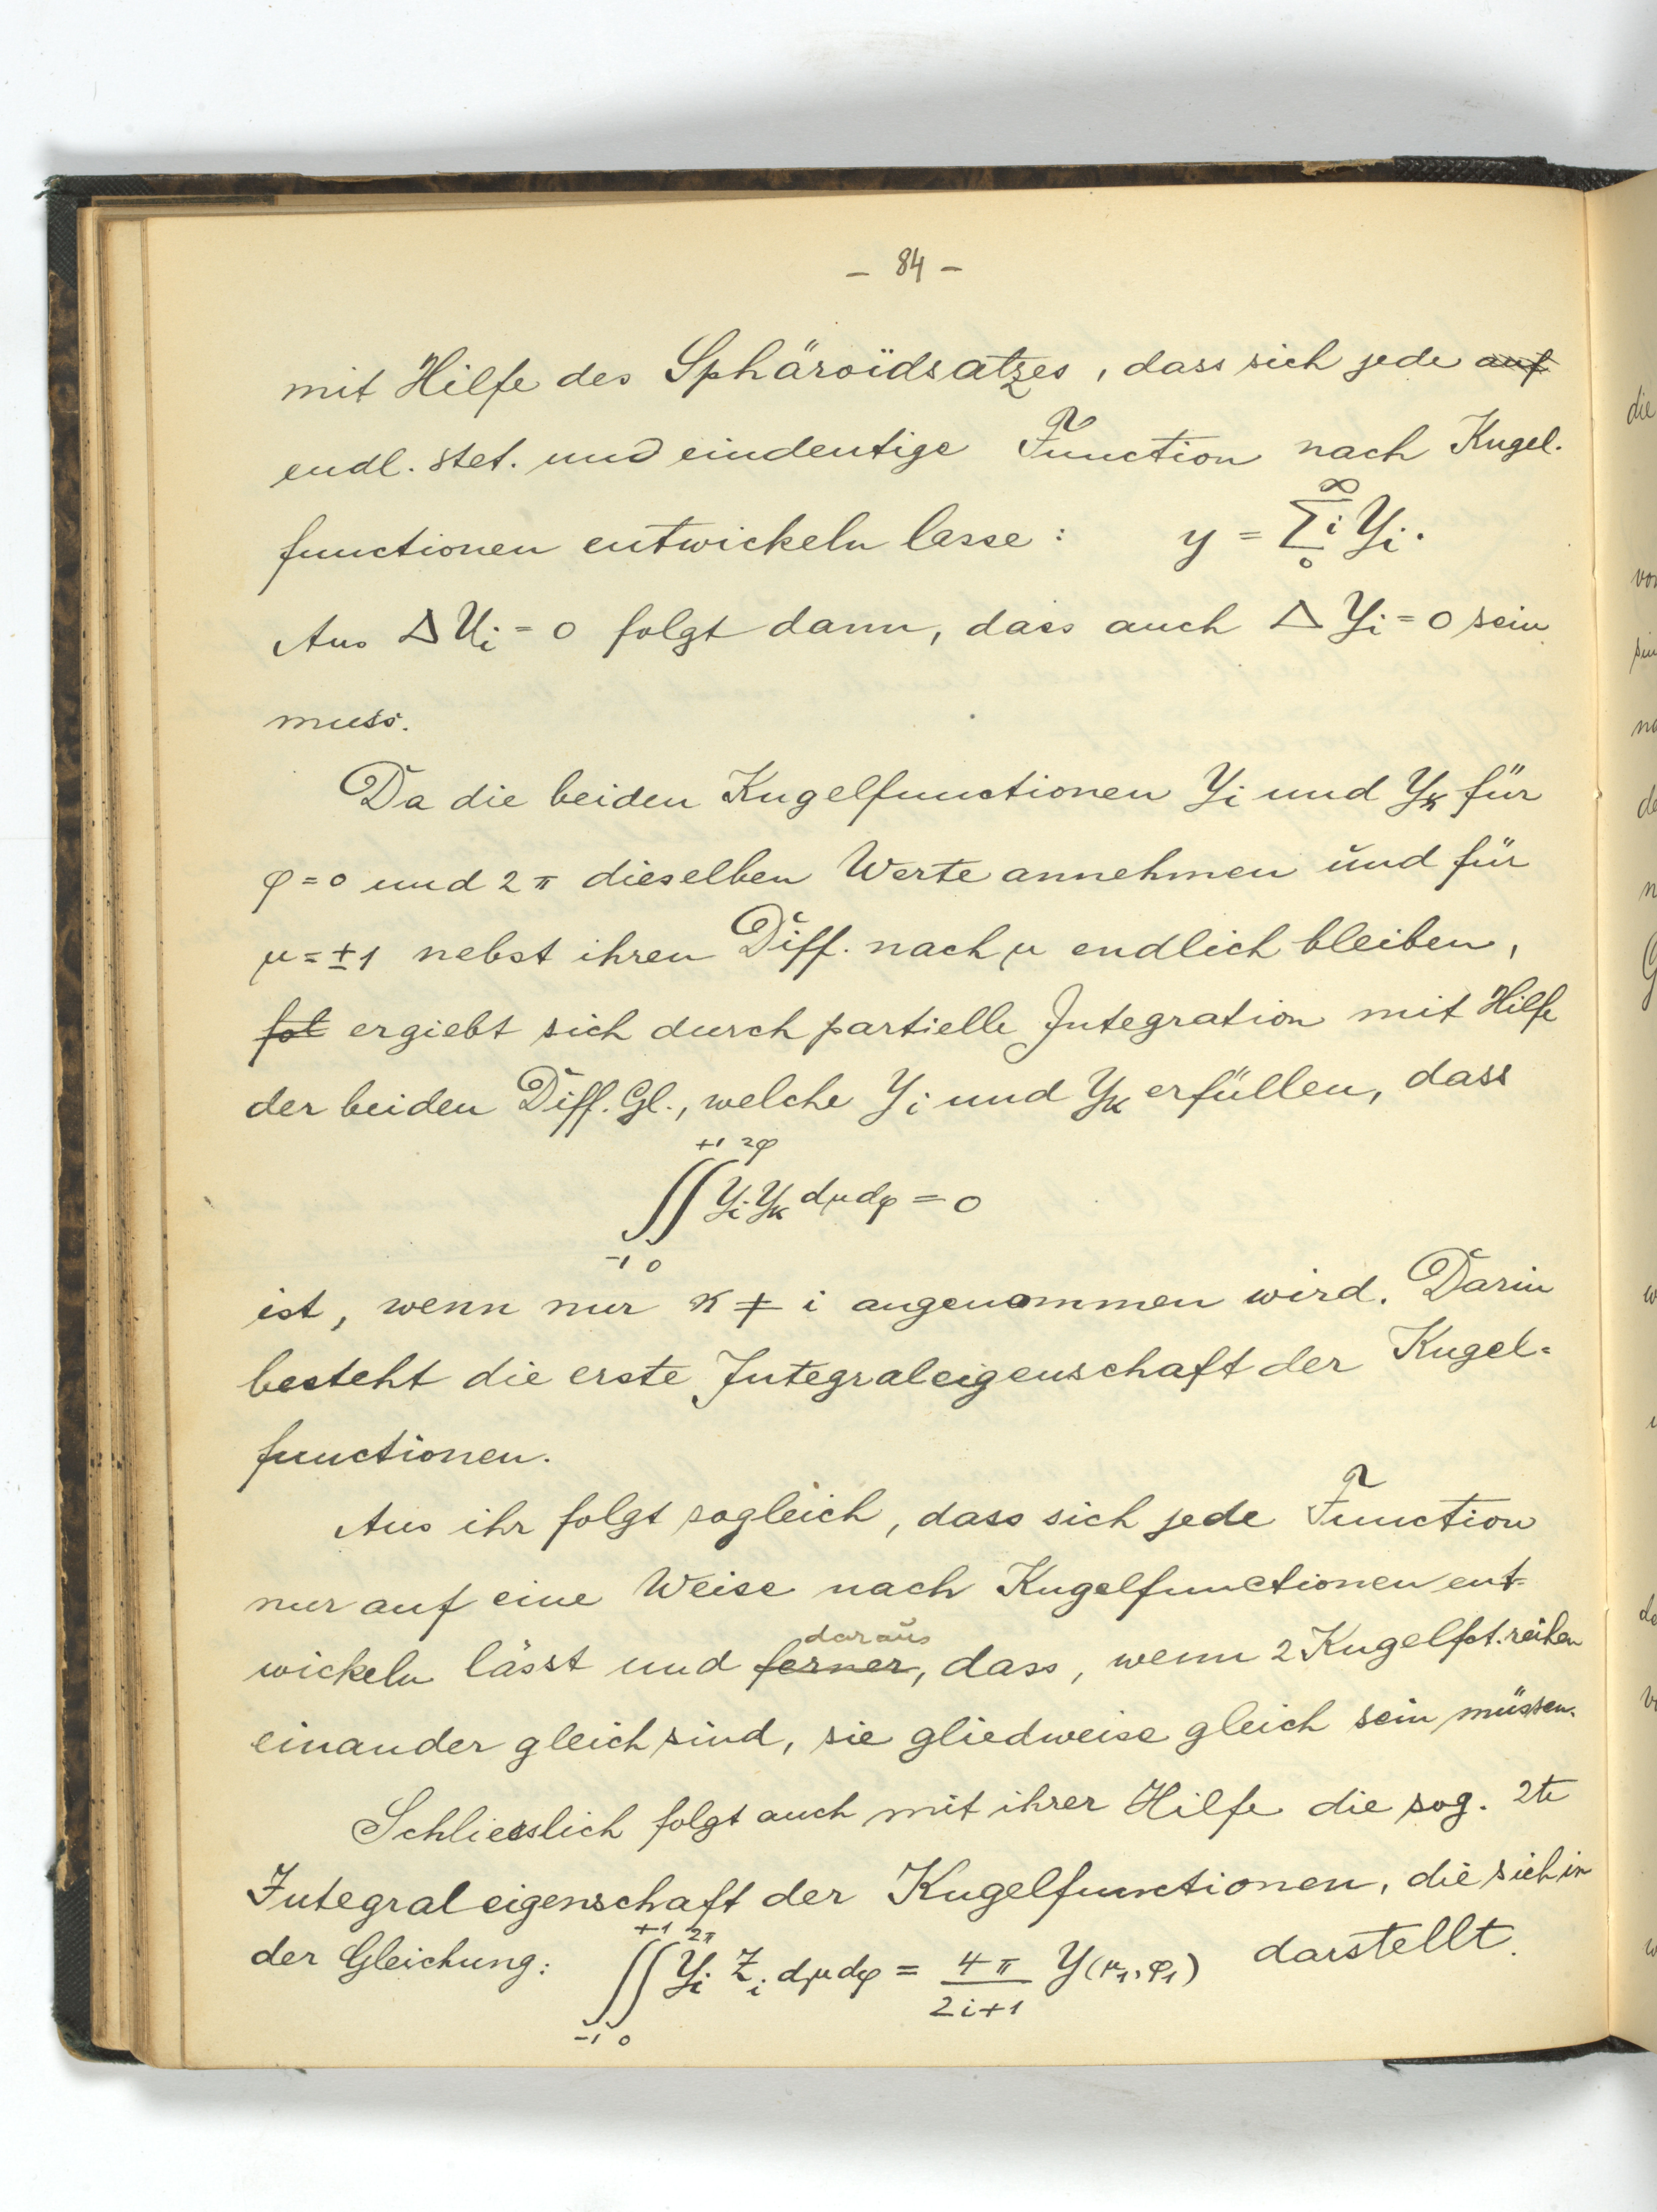 – 84 –
mit Hilfe des Sphäroïdsatzes, dass sich jede auf
endl. stet. und eindeutige Function nach Kugel-
functionen entwickeln lasse: y = ∑_0^∞ i Y_i.
Aus Δ U_i = 0 folgt dann, dass auch Δ Y_i = 0 sein
muss.
Da die beiden Kugelfunctionen Y_i und Y_κ für
φ = 0 und 2π dieselben Werte annehmen und für
μ = ±1 nebst ihren Diff. nach μ endlich bleiben,
fol ergiebt sich durch partielle Integration mit Hilfe
der beiden Diff. Gl., welche Y_i und Y_κ erfüllen, dass
∫_{-1}^{+1} ∫_0^{2φ} Y_i Y_κ dμ dφ = 0
ist, wenn nur κ ≠ i angenommen wird. Darin
besteht die erste Integraleigenschaft der Kugel-
functionen.
Aus ihr folgt sogleich, dass sich jede Function
nur auf eine Weise nach Kugelfunctionen ent-
daraus
wickeln lässt und ferner, dass, wenn 2 Kugelfct. reihen
einander gleich sind, sie gliedweise gleich sein müssen.
Schliesslich folgt auch mit ihrer Hilfe die sog. 2te
Integraleigenschaft der Kugelfunctionen, die sich in
der Gleichung: ∫_{-1}^{+1} ∫_0^{2π} Y_i Z_i dμ dφ = 4π/(2i+1) Y(μ_1, φ_1) darstellt.